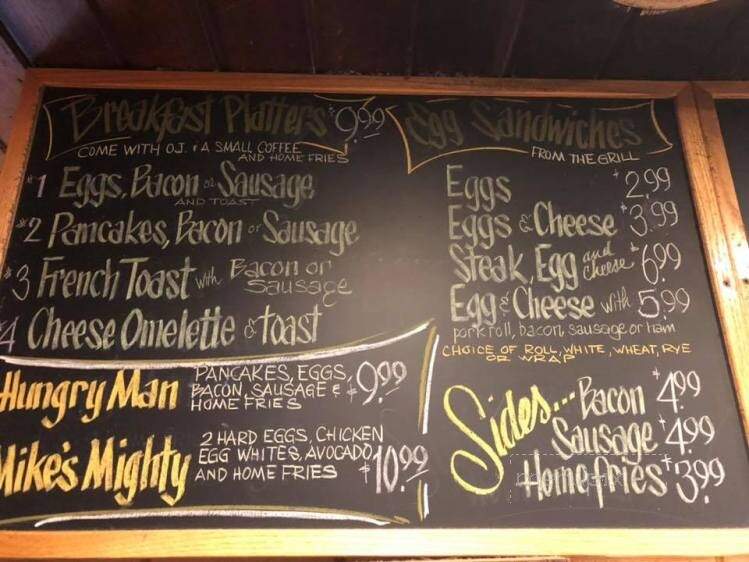 Breakfast Platters $9.99
COME WITH O.J. & A SMALL COFFEE
AND HOME FRIES
#1 Eggs, Bacon or Sausage
AND TOAST
#2 Pancakes, Bacon or Sausage
#3 French Toast with Bacon or
Sausage
#4 Cheese Omelette & toast
Hungry Man PANCAKES, EGGS,
BACON, SAUSAGE & $9.99
HOME FRIES
Mike's Mighty 2 HARD EGGS, CHICKEN
EGG WHITES, AVOCADO
AND HOME FRIES $10.99
Egg Sandwiches
FROM THE GRILL
Eggs $2.99
Eggs & Cheese $3.99
Steak, Egg and cheese $6.99
Egg & Cheese with $5.99
pork roll, bacon, sausage or ham
CHOICE OF ROLL, WHITE, WHEAT, RYE
OR WRAP
Sides... Bacon $4.99
Sausage $4.99
Homefries $3.99